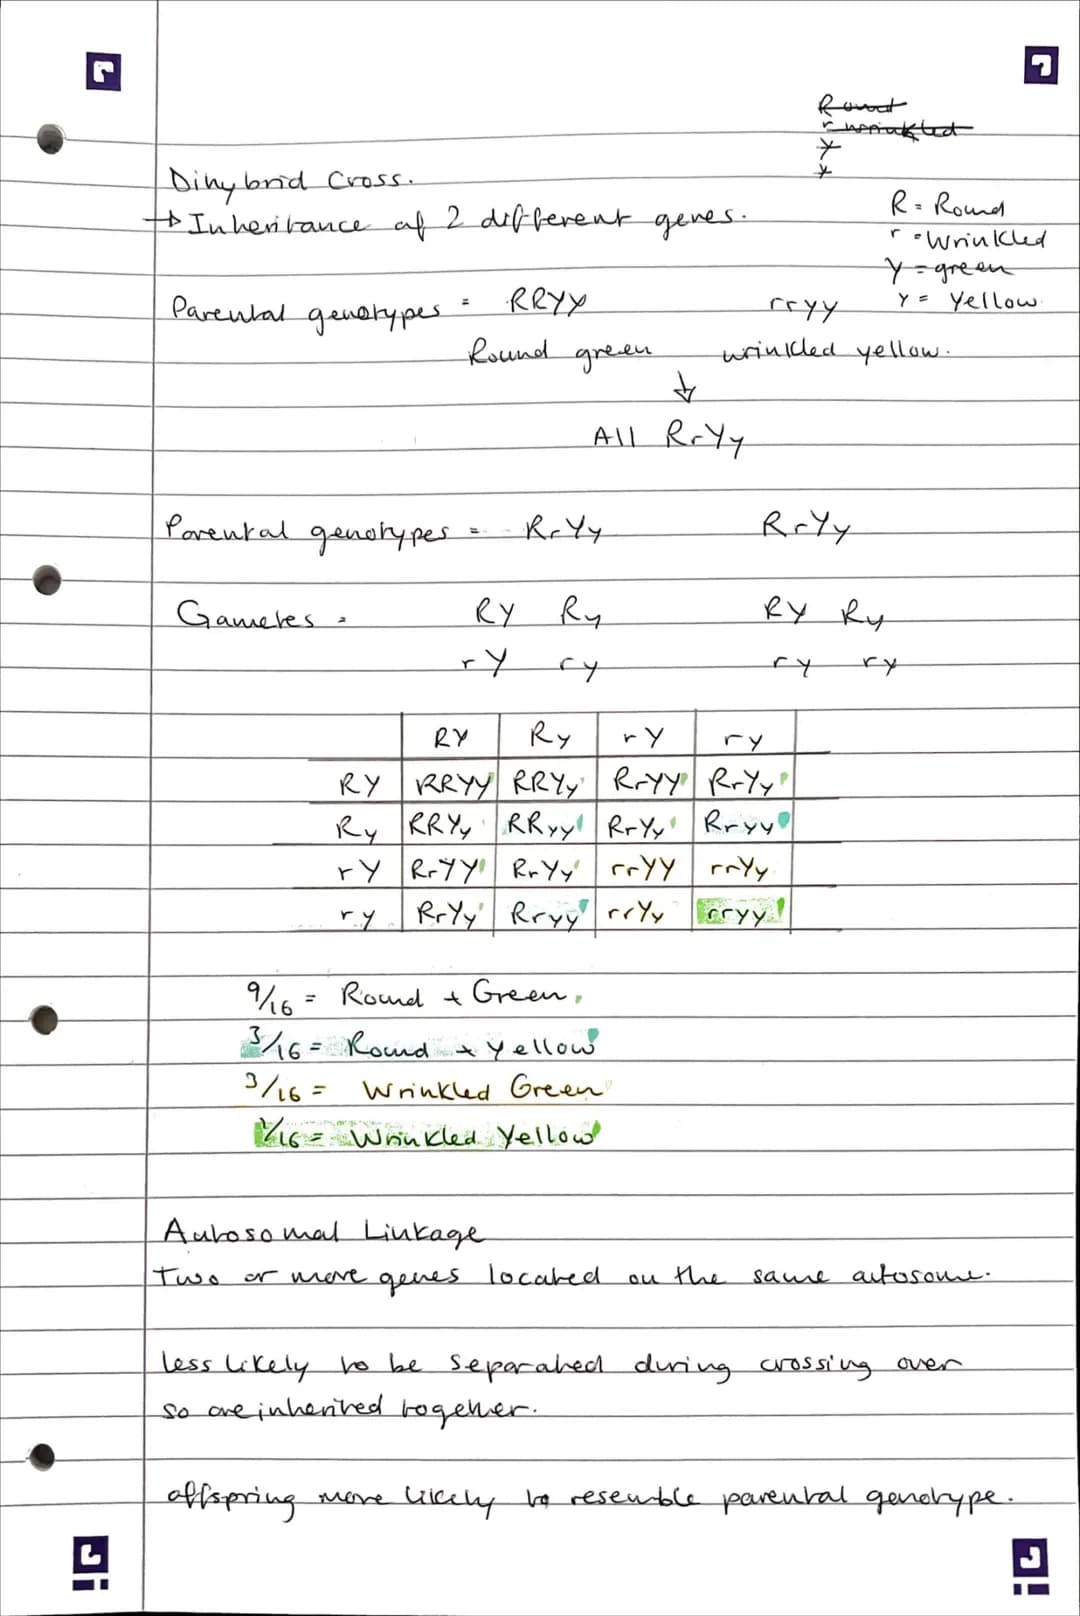 Round
r wrinkled
Y
y
Dihybrid Cross.
→ Inheritance of 2 different genes.
R = Round
r = Wrinkled
Y = green
y = Yellow
Parental genotypes = RRYY rryy
Round green wrinkled yellow.
↓
All RrYy
Parental genotypes = RrYy RrYy
Gametes = RY Ry RY Ry
rY ry ry ry
RY Ry rY ry
RY RRYY RRYy RrYY RrYy
Ry RRYy RRyy RrYy Rryy
rY RrYY RrYy rrYY rrYy
ry RrYy Rryy rrYy rryy
9/16 = Round + Green.
3/16 = Round + Yellow
3/16 = Wrinkled Green
1/16 = Wrinkled Yellow
Autosomal Linkage
Two or more genes located on the same autosome.
less likely to be separated during crossing over
so are inherited together.
offspring more likely to resemble parental genotype.